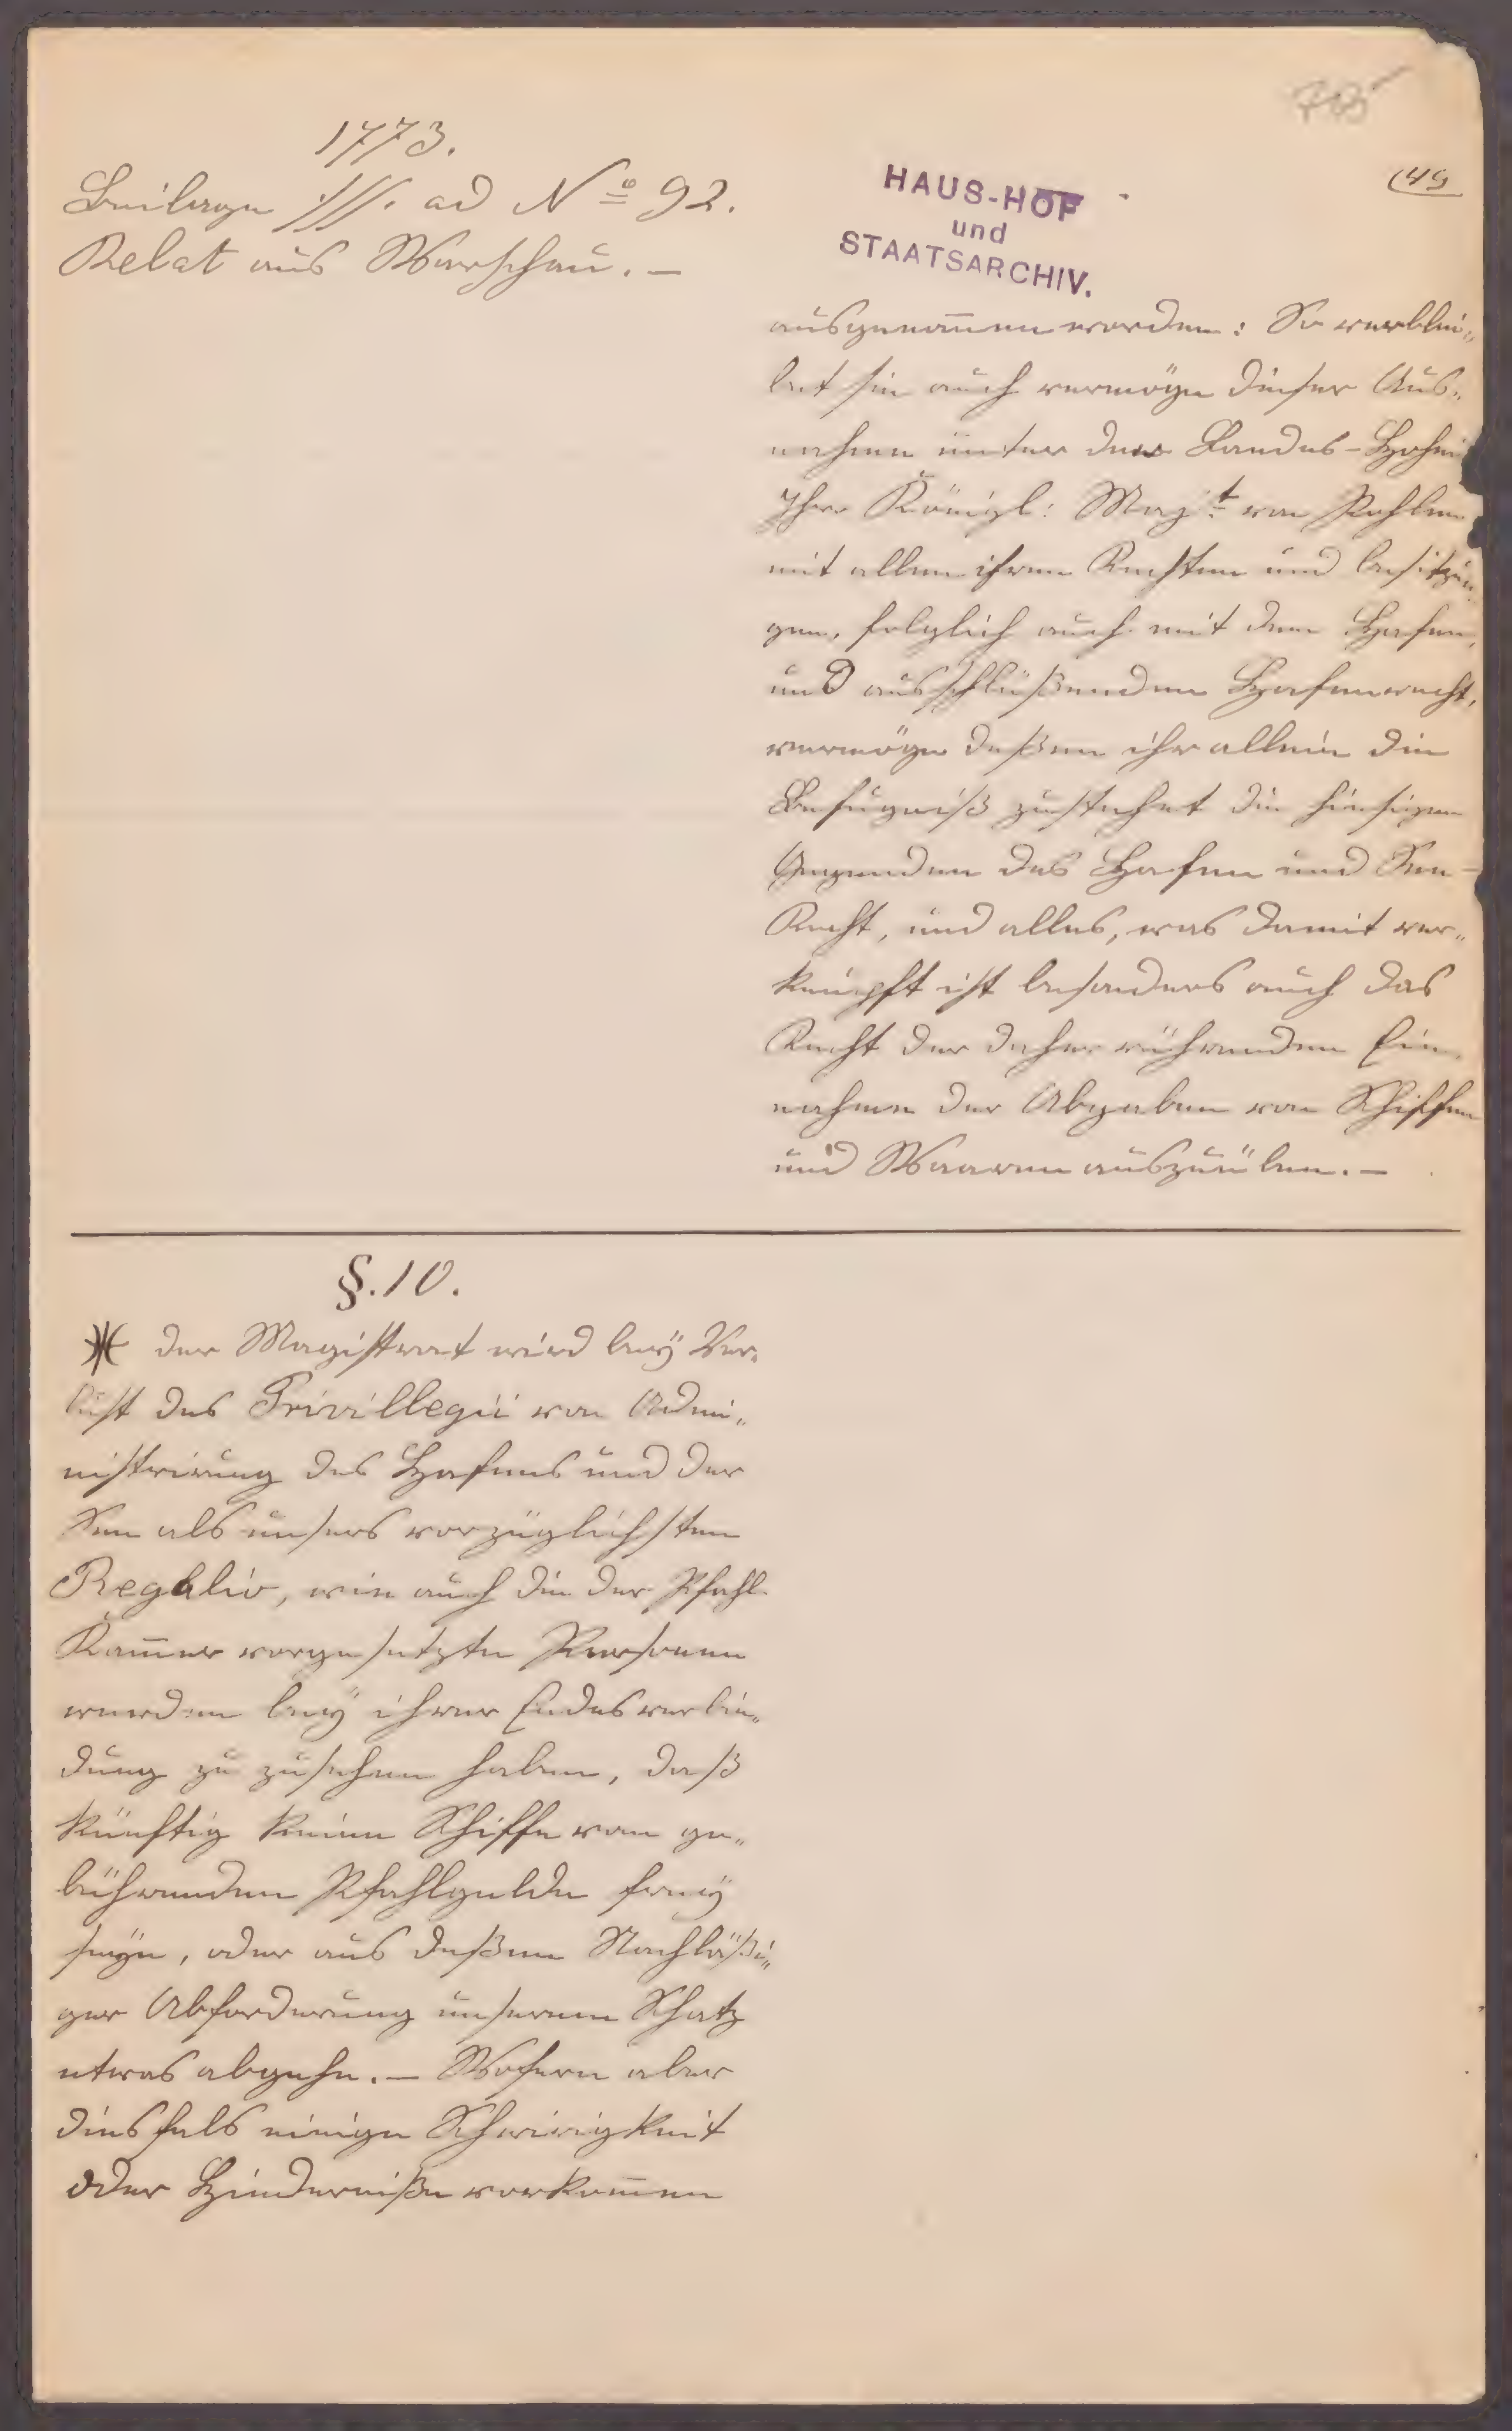 1773.
Beilage ·///. ad Nº 92.
Relat aus Warschau. —
(49
HAUS-HOF
und
STAATSARCHIV.
ausgenom̄en worden: So verblei„
bet sie auch vermöge dieser Aus„
nahme unter der Landes-Hohei
Ihro Königl: Maj:t von Pohlen
mit allen ihren Rechten und besitzun„
gen, folglich auch mit dem Hafen,
und ausschlüßenden Hafenrecht,
vermöge deßen ihr allein die
Befugniß zustehet die hiesigen
Gegenden des Hafen und See-
Recht, und alles, was damit ver„
knüpft ist besonders auch das
Recht der daher rührenden Ein„
nahme der Abgaben von Schiffen
und Waaren auszuüben. —
§. 10.
der Magistrat wird beÿ Ver„
lust des Privillegii von Admi„
nistrirung des Hafens und der
See als unsers vorzüglichsten
Regalio, wie auch die der Pfahl-
Kam̄er vorgesetzte Personen
werden beÿ ihrer Eidesverbin„
dung zu zusehen haben, daß
künftig keine Schiffe vom ge„
bührenden Pfahlgelde freÿ
seÿn, oder aus deßen Nachläßi„
ger Abforderung unserem Schatz
etwas abgehe. — Wofern aber
diesfals einige Schwirigkeit
oder Hinderniße vorkom̄en